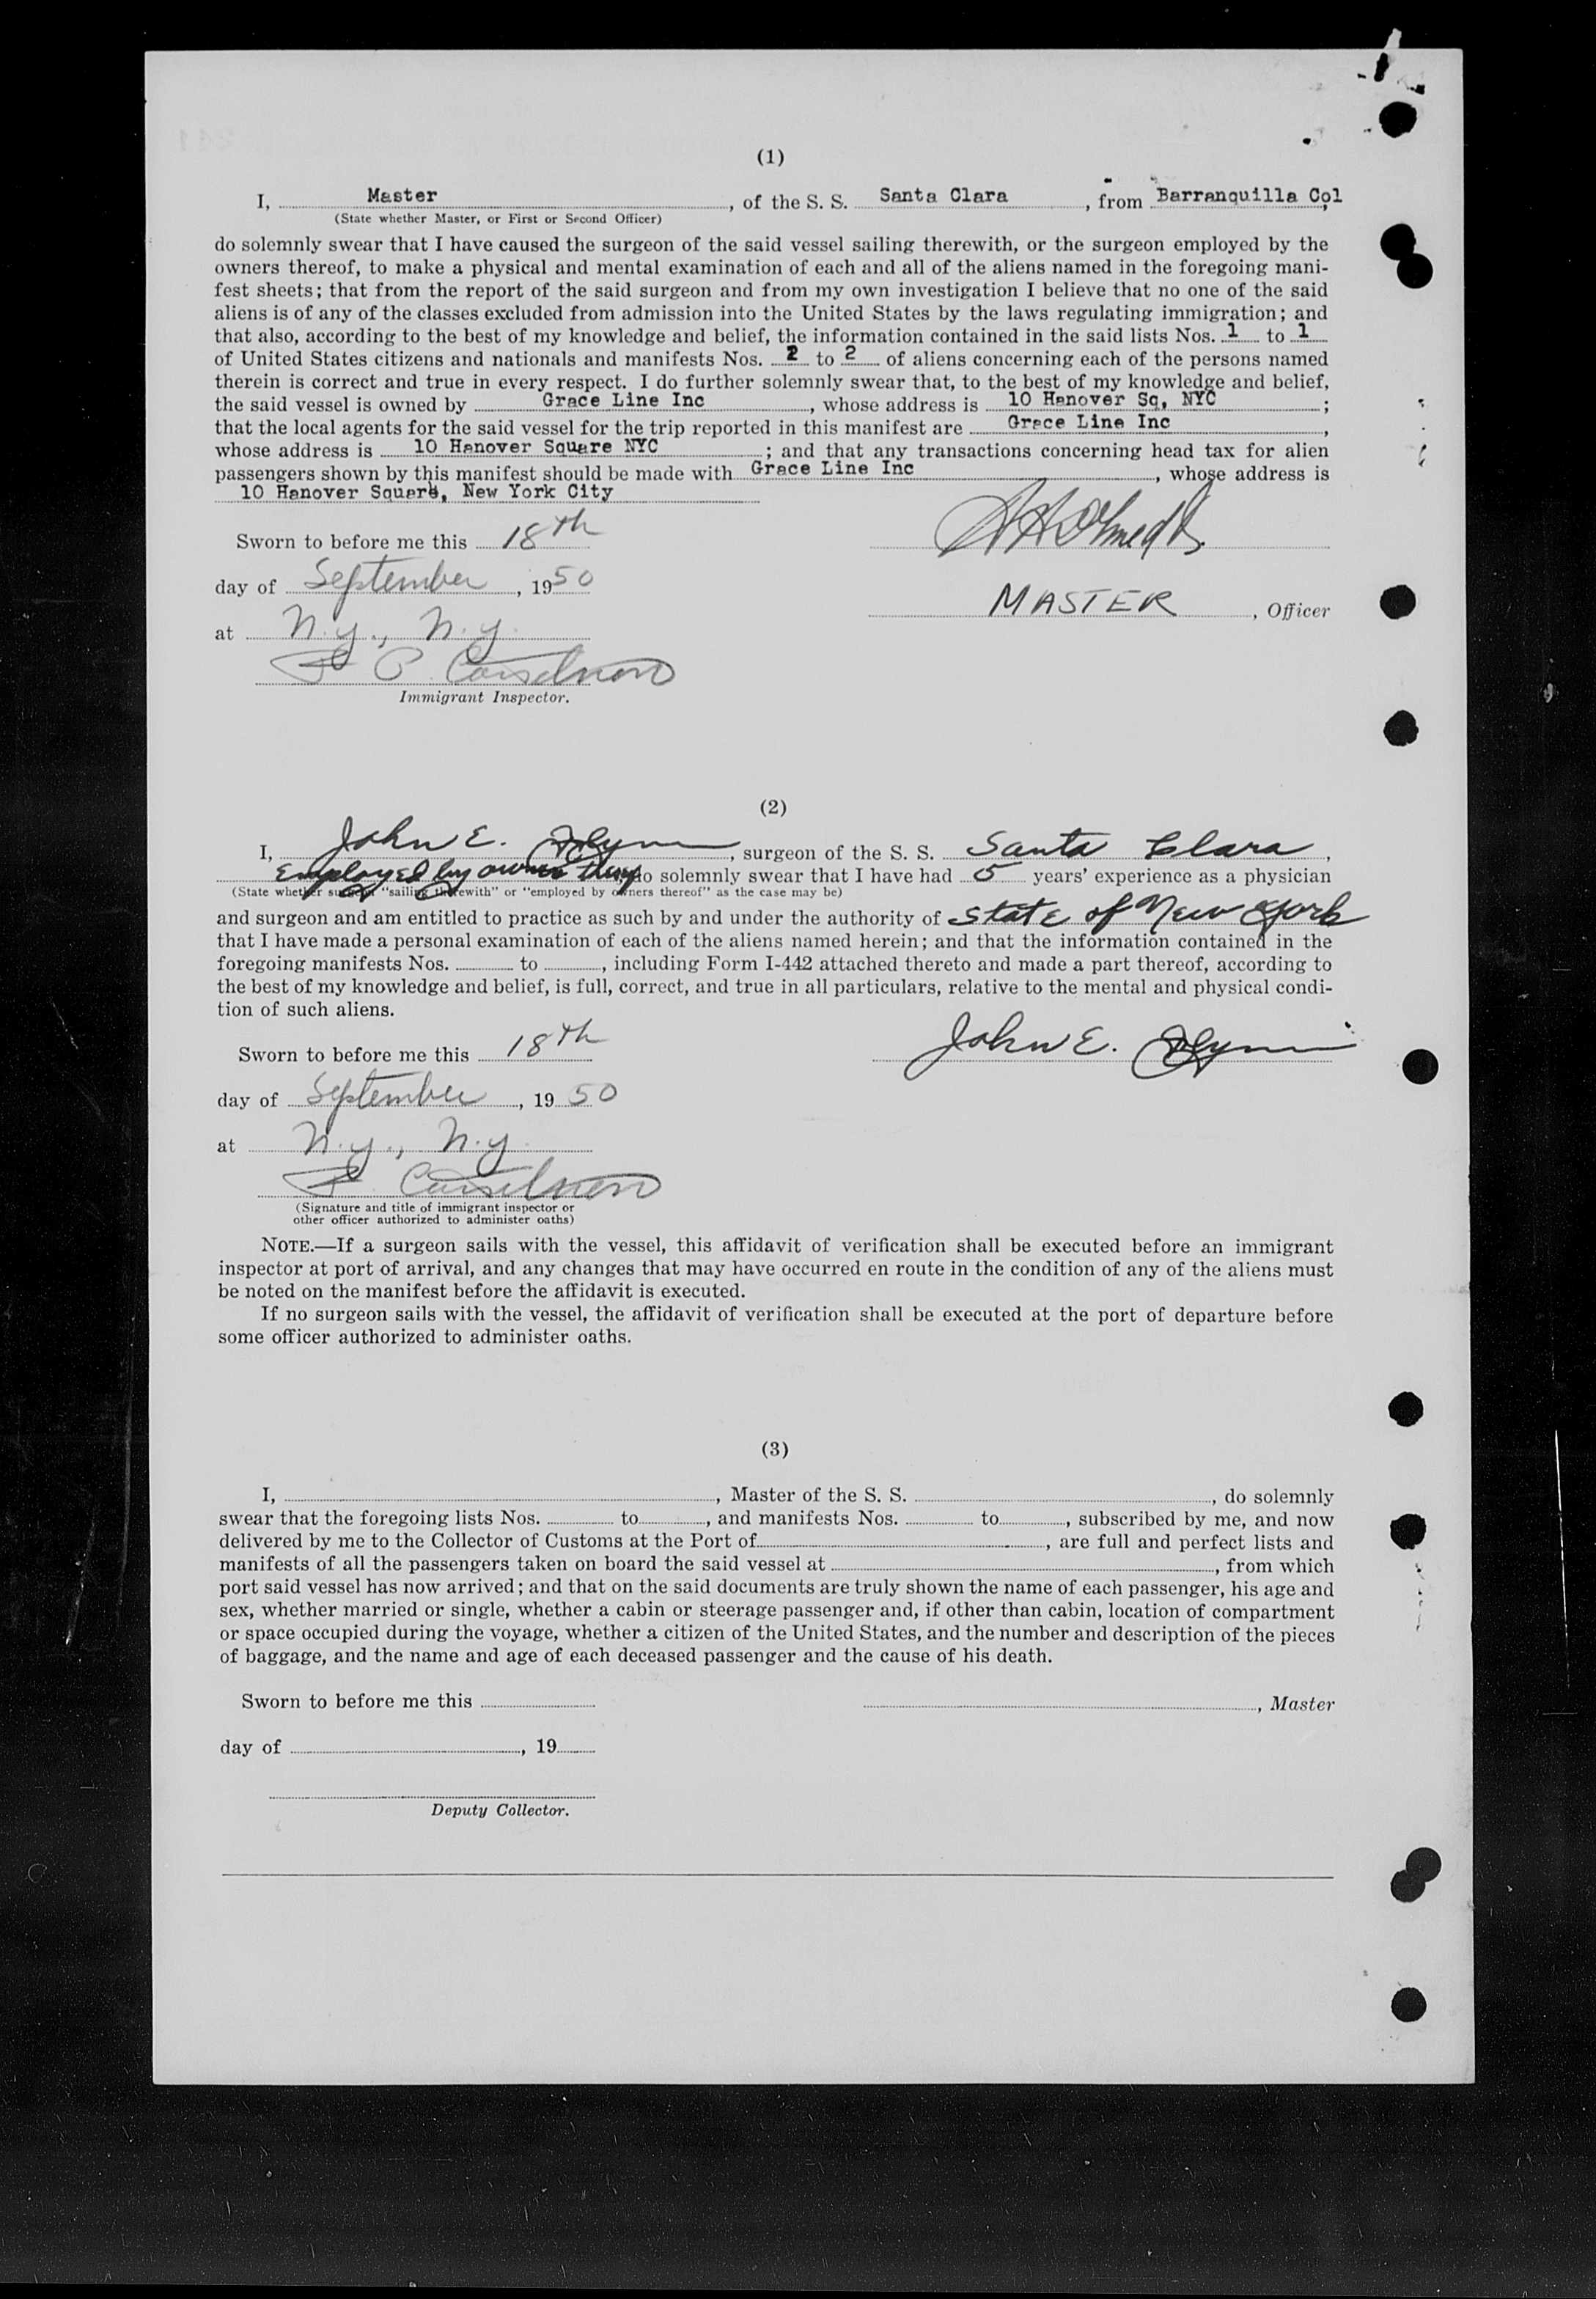 (1)
I, Master, of the S. S. Santa Clara, from Barranquilla Col,
(State whether Master, or First or Second Officer)
do solemnly swear that I have caused the surgeon of the said vessel sailing therewith, or the surgeon employed by the
owners thereof, to make a physical and mental examination of each and all of the aliens named in the foregoing mani-
fest sheets; that from the report of the said surgeon and from my own investigation I believe that no one of the said
aliens is of any of the classes excluded from admission into the United States by the laws regulating immigration; and
that also, according to the best of my knowledge and belief, the information contained in the said lists Nos. 1 to 1
of United States citizens and nationals and manifests Nos. 2 to 2 of aliens concerning each of the persons named
therein is correct and true in every respect. I do further solemnly swear that, to the best of my knowledge and belief,
the said vessel is owned by Grace Line Inc, whose address is 10 Hanover Sq, NYC;
that the local agents for the said vessel for the trip reported in this manifest are Grace Line Inc,
whose address is 10 Hanover Square NYC; and that any transactions concerning head tax for alien
passengers shown by this manifest should be made with Grace Line Inc, whose address is
10 Hanover Square, New York City
Sworn to before me this 18th
day of September, 1950
MASTER, Officer
at N.Y., N.Y.
Immigrant Inspector.
(2)
I, John E. Flynn, surgeon of the S. S. Santa Clara,
Employed by owners do solemnly swear that I have had 5 years' experience as a physician
(State whether surgeon "sailing therewith" or "employed by owners thereof" as the case may be)
and surgeon and am entitled to practice as such by and under the authority of State of New York
that I have made a personal examination of each of the aliens named herein; and that the information contained in the
foregoing manifests Nos. to , including Form I-442 attached thereto and made a part thereof, according to
the best of my knowledge and belief, is full, correct, and true in all particulars, relative to the mental and physical condi-
tion of such aliens.
Sworn to before me this 18th
John E. Flynn
day of September, 1950
at N.Y., N.Y.
(Signature and title of immigrant inspector or
other officer authorized to administer oaths)
NOTE.—If a surgeon sails with the vessel, this affidavit of verification shall be executed before an immigrant
inspector at port of arrival, and any changes that may have occurred en route in the condition of any of the aliens must
be noted on the manifest before the affidavit is executed.
If no surgeon sails with the vessel, the affidavit of verification shall be executed at the port of departure before
some officer authorized to administer oaths.
(3)
I, , Master of the S. S. , do solemnly
swear that the foregoing lists Nos. to , and manifests Nos. to , subscribed by me, and now
delivered by me to the Collector of Customs at the Port of , are full and perfect lists and
manifests of all the passengers taken on board the said vessel at , from which
port said vessel has now arrived; and that on the said documents are truly shown the name of each passenger, his age and
sex, whether married or single, whether a cabin or steerage passenger and, if other than cabin, location of compartment
or space occupied during the voyage, whether a citizen of the United States, and the number and description of the pieces
of baggage, and the name and age of each deceased passenger and the cause of his death.
Sworn to before me this
, Master
day of , 19
Deputy Collector.